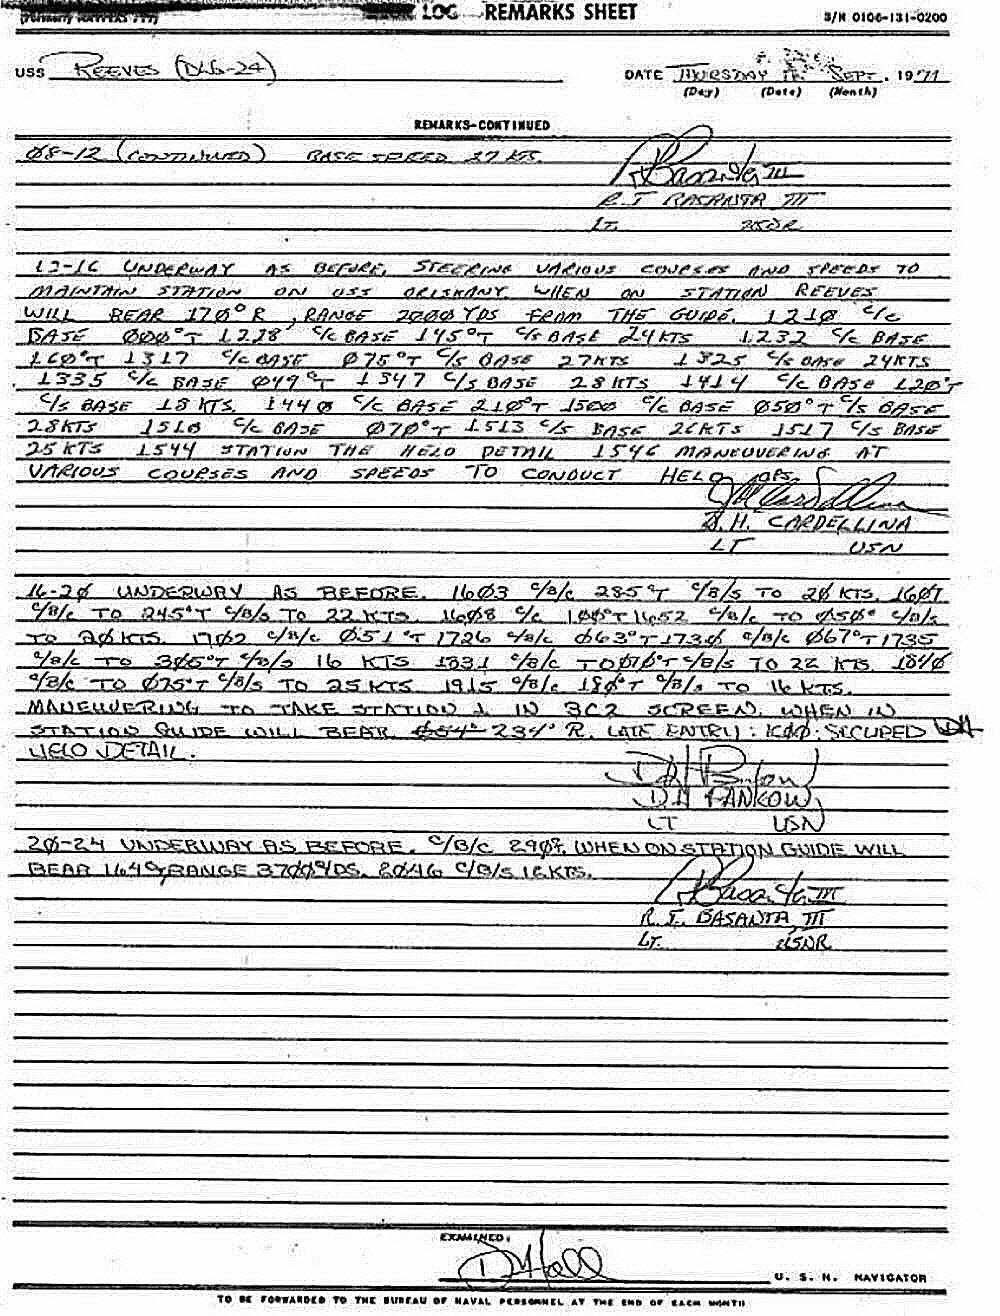 LOG REMARKS SHEET
S/N 0106-131-0200
USS REEVES (DLG-24)
DATE THURSDAY SEPT. 1971
(Day) (Date) (Month)
REMARKS-CONTINUED
Ø8-12 (CONTINUED) BASE SPEED 27 KTS.
R. T BASANTA III
LT. USNR
12-16 UNDERWAY AS BEFORE, STEERING VARIOUS COURSES AND SPEEDS TO
MAINTAIN STATION ON USS ORISKANY. WHEN ON STATION REEVES
WILL BEAR 17Ø°R, RANGE 2ØØØ YDS FROM THE GUIDE. 121Ø C/C
BASE ØØØ°T 1228 C/C BASE 145°T C/S BASE 24 KTS 1232 C/C BASE
16Ø°T 1317 C/C BASE Ø75°T C/S BASE 27KTS 1325 C/S BASE 24KTS
1335 C/C BASE Ø49°T 1347 C/S BASE 28 KTS 1414 C/C BASE 12Ø°T
C/S BASE 18 KTS. 144Ø C/C BASE 21Ø°T 15ØØ C/C BASE Ø5Ø°T C/S BASE
28KTS 151Ø C/C BASE Ø7Ø°T 1513 C/S BASE 26KTS 1517 C/S BASE
25 KTS 1544 STATION THE HELO DETAIL 1546 MANEUVERING AT
VARIOUS COURSES AND SPEEDS TO CONDUCT HELO OPS.
D. H. CARDELLINA
LT USN
16-2Ø UNDERWAY AS BEFORE. 16Ø3 C/B/C 285°T C/B/S TO 2Ø KTS. 16Ø7
C/B/C TO 245°T C/B/S TO 22 KTS. 16Ø8 C/C 1652 C/B/C TO Ø5Ø° C/B/S
TO 2Ø KTS. 17Ø2 C/B/C Ø51°T 1726 C/B/C Ø63°T 173Ø C/B/C Ø67°T 1735
C/B/C TO 3Ø5°T C/B/S 16 KTS 1831 C/B/C TO Ø7Ø°T C/B/S TO 22 KTS 184Ø
C/B/C TO Ø75°T C/B/S TO 25 KTS. 1915 C/B/C 18Ø°T C/B/S TO 16 KTS.
MANEUVERING TO TAKE STATION 1 IN 3C2 SCREEN. WHEN IN
STATION GUIDE WILL BEAR 234° R. LATE ENTRY: SECURED
HELO DETAIL.
D.H PANKOW
LT USN
2Ø-24 UNDERWAY AS BEFORE. C/B/C 29Ø°T. WHEN ON STATION GUIDE WILL
BEAR 164°, RANGE 37ØØ YDS. 2Ø46 C/B/S 16 KTS.
R. T. BASANTA III
LT. USNR
EXAMINED:
D Hall
U. S. N. NAVIGATOR
TO BE FORWARDED TO THE BUREAU OF NAVAL PERSONNEL AT THE END OF EACH MONTH